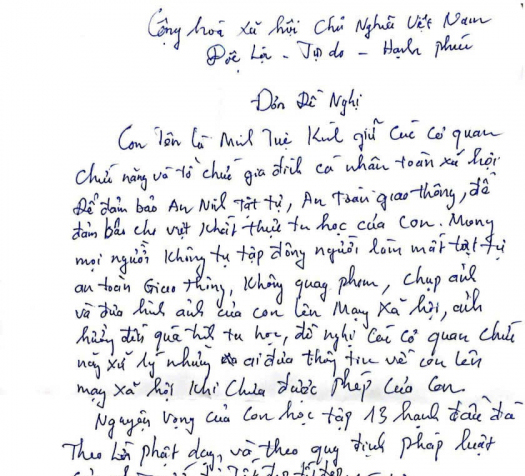 Cộng hoà xã hội Chủ Nghĩa Việt Nam
Độc Lập - Tự do - Hạnh phúc
Đơn Đề Nghị
Con Tên là Minh Tuệ Kính gửi các cơ quan
chức năng và tổ chức gia đình cá nhân toàn xã hội
Để đảm bảo An Ninh Trật tự, An toàn giao thông, để
đảm bảo cho việt khất thực tu học của con. Mong
mọi người không tụ tập đông người làm mất trật tự
an toàn Giao thông, Không quay phim, chụp ảnh
và đưa hình ảnh của con lên Mạng Xã hội, ảnh
hưởng đến quá trình tu học, đề nghị các cơ quan chức
năng xử lý những ai đưa thông tin về con lên
mạng xã hội khi chưa được phép của con
Nguyện vọng của con học tập 13 hạnh đầu đà
Theo lời phật dạy, và theo quy định pháp luật